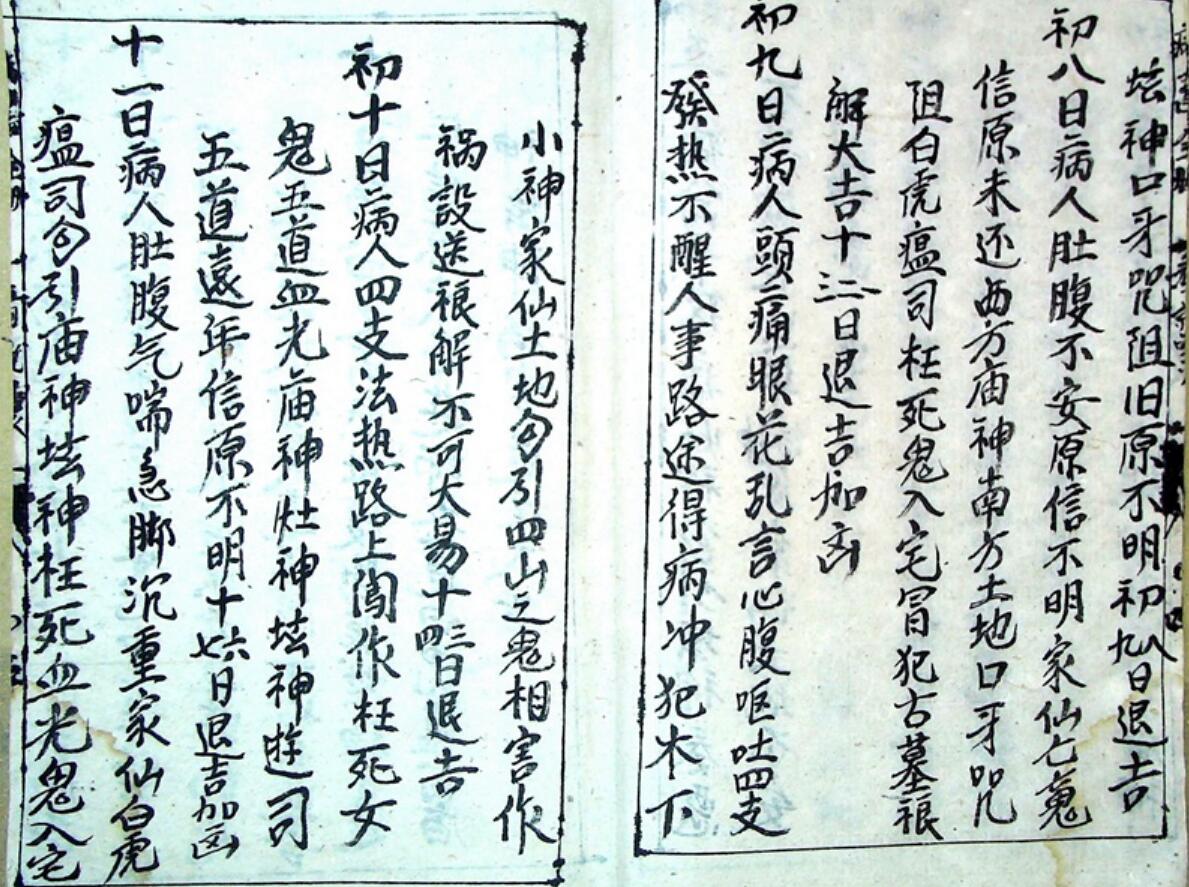 坛神口牙咒阻旧原不明初八九日退吉
初八日病人肚腹不安原信不明家仙亡鬼
信原未还西方庙神南方土地口牙咒
阻白虎瘟司枉死鬼入宅冒犯古墓禳
解大吉十二三日退吉加凶
初九日病人頭痛眼花乱言心腹呕吐四支
發热不醒人事路途得病冲犯木下
小神家仙土地勾引四山之鬼相害作
祸設送禳解不可大易十三四日退吉
初十日病人四支法热路上闯作枉死女
鬼五道血光庙神灶神坛神遊司
五道遠年信原不明十六七日退吉加凶
十一日病人肚腹气喘急脚沉重家仙白虎
瘟司勾引庙神坛神枉死血光鬼入宅